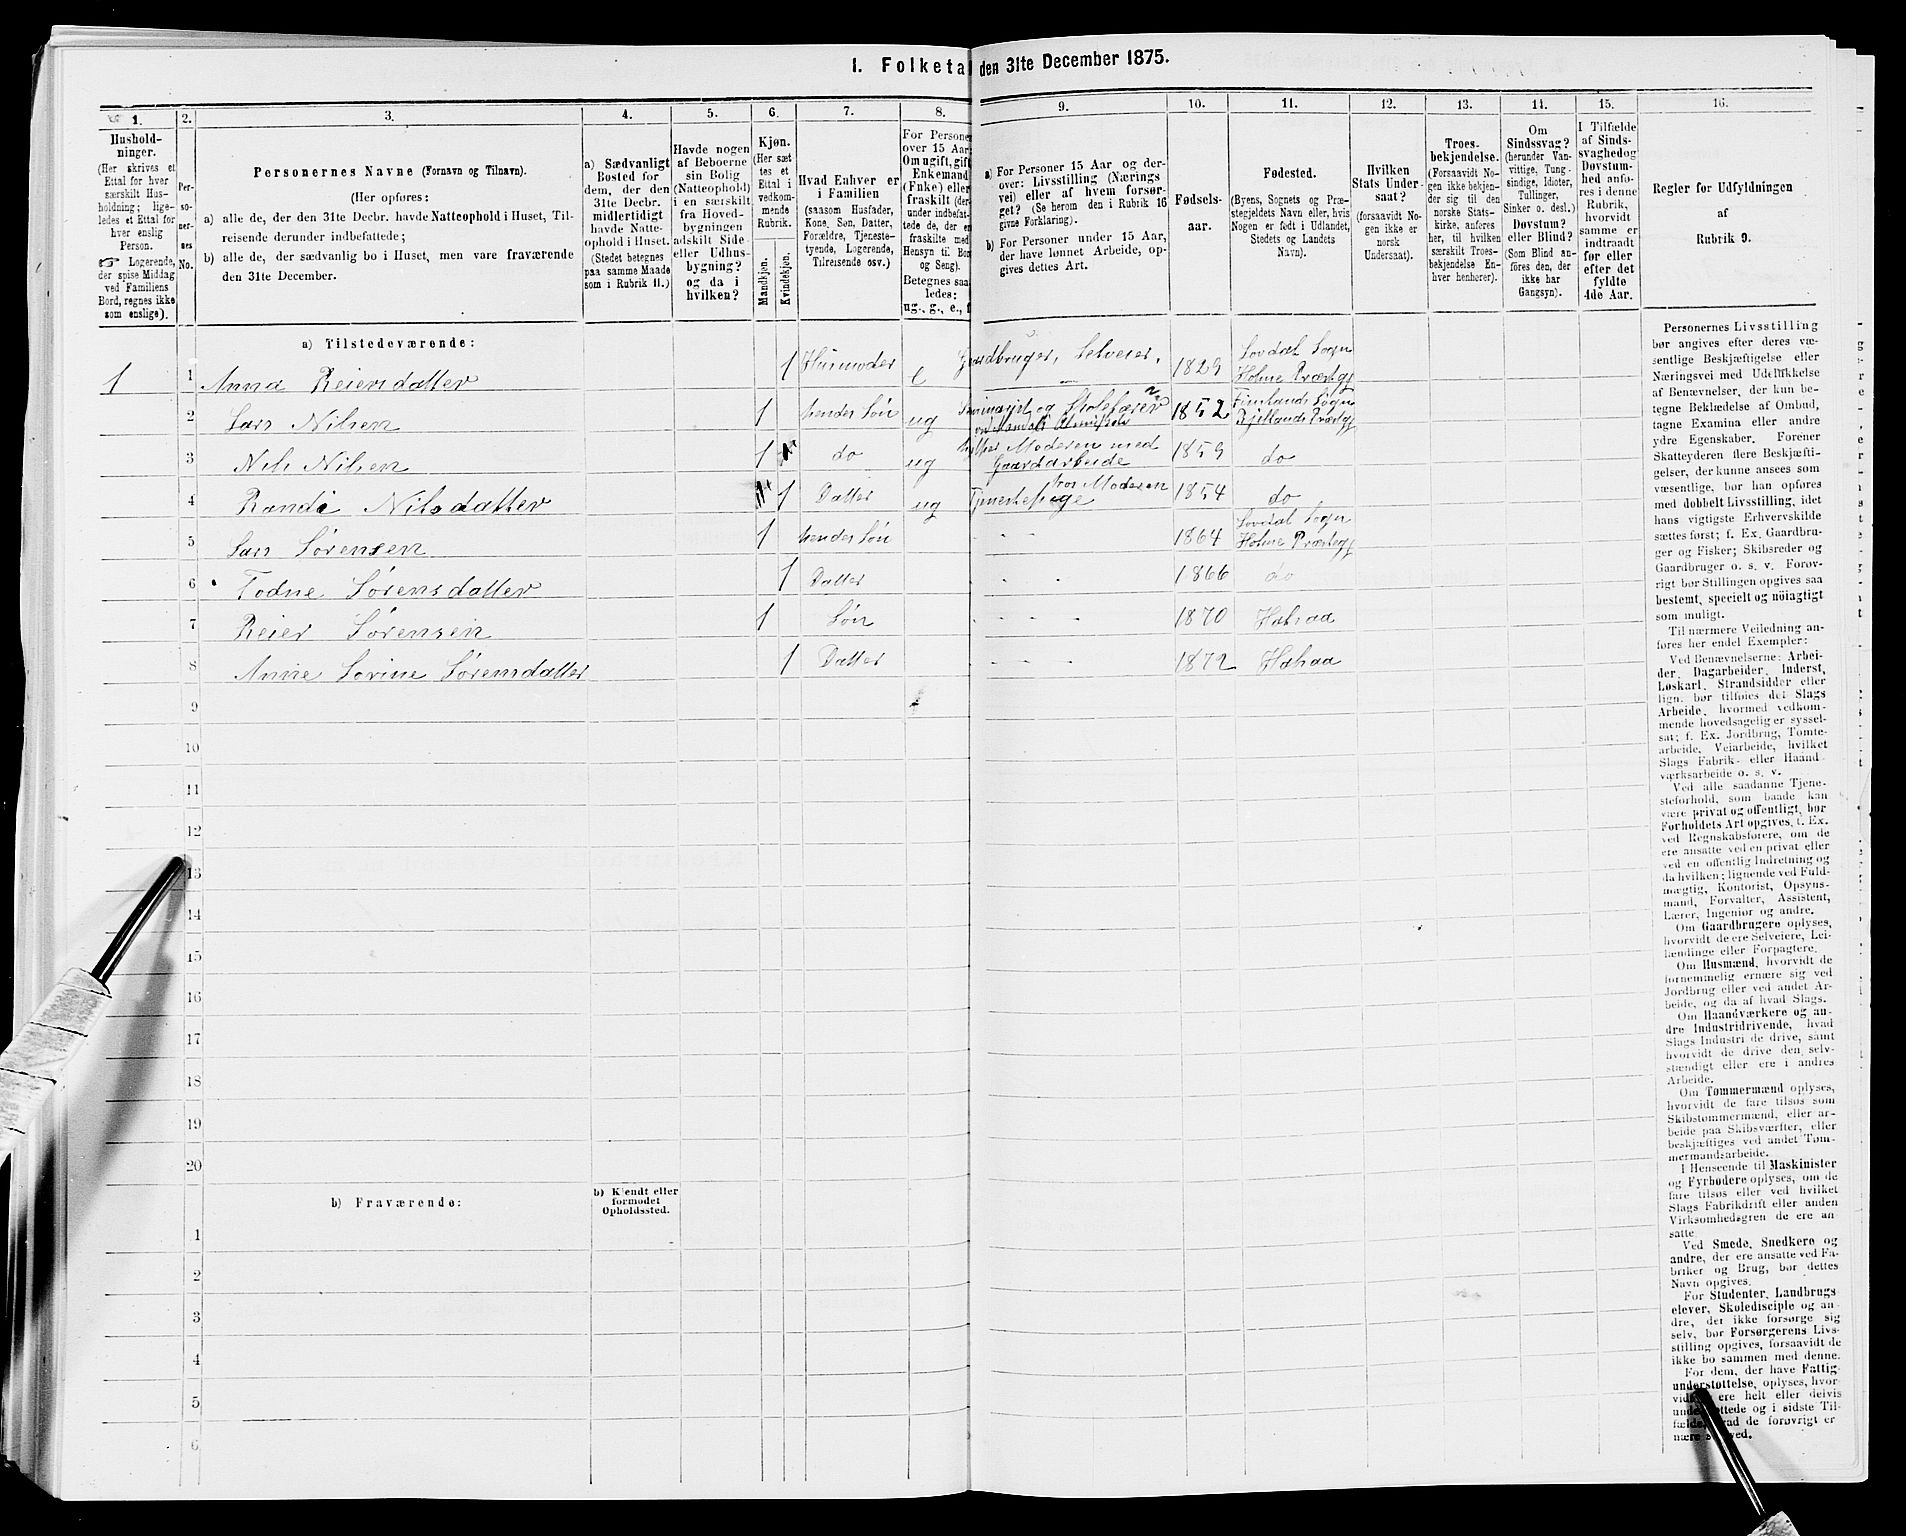 I. Folketal den 31te December 1875.
1. 2. 3. 4. 5. 6. 7. 8. 9. 10. 11. 12. 13. 14. 15. 16.
Husholdninger.
(Her skrives et
Ettal for hver
særskilt Husholdning; ligeledes
et Ettal for
hver enslig
Person.
☞ Logerende,
der spise Middag
ved Familiens
Bord, regnes ikke
som enslige).
Personernes No.
Personernes Navne (Fornavn og Tilnavn).
(Her opføres:
a) alle de, der den 31te Decbr. havde Natteophold i Huset, Tilreisende
derunder indbefattede;
b) alle de, der sædvanlig bo i Huset, men vare fraværende
den 31te December.
a) Sædvanligt
Bosted for
dem, der den
31te Decbr.
midlertidigt
havde Natteophold
i Huset.
(Stedet betegnes
paa samme Maade
som i Rubrik 11.)
Havde nogen
af Beboerne
sin Bolig
(Natteophold)
i en særskilt
fra Hovedbygningen
adskilt Sideeller
Udhusbygning?
og da i
hvilken?
Kjøn.
(Her sættes
et
Ettal i
vedkommende
Rubrik.
Mandkjøn.
Kvindekjøn.
Hvad Enhver er
i Familien
(saasom Husfader,
Kone, Søn, Datter,
Forældre, Tjenestetyende,
Logerende,
Tilreisende osv.)
For Personer
over 15 Aar:
Om ugift, gift,
Enkemand
(Enke) eller
fraskilt
Betegnes saaledes:
ug., g., e., f.
a) For Personer 15 Aar og derover:
Livsstilling (Næringsvei)
eller af hvem forsørget?
(Se herom den i Rubrik 16
givne Forklaring).
b) For Personer under 15 Aar,
der have lønnet Arbeide, opgives
dettes Art.
Fødselsaar.
Fødested.
(Byens, Sognets og Præstegjeldets
Navn eller, hvis
Nogen er født i Udlandet,
Stedets og Landets
Navn).
Hvilken
Stats Undersaat?
(forsaavidt Nogen
ikke er
norsk
Undersaat).
Troesbekjendelse.
(Forsaavidt Nogen
ikke bekjender
sig til den
norske Statskirke,
anføres
her, til hvilken
særskilt Troesbekjendelse
Enhver
henhører).
Om
Sindssvag?
(herunder Vanvittige,
Tungsindige,
Idioter,
Tullinger,
Sinker o. desl.)
Døvstum?
eller Blind?
(Som Blind anføres
den, der
ikke har
Gangsyn).
I Tilfælde
af Sindssvaghed
og
Døvstumhed
anføres
i denne
Rubrik,
hvorvidt
samme er
indtraadt
før eller
efter det
fyldte
4de Aar.
Regler for Udfyldningen
af
Rubrik 9.
a) Tilstedeværende:
1 1 Anna Reiersdatter 1 Husmoder e Gaardbruger, Selveier, 1829 Lovdal Sogn Holme Præstegj
2 Lars Nilsen 1 hendes Søn ug Seminarist og Skolelærer 1852 Finslands Sogn Bjellands Præstegj
3 Nils Nilsen 1 do ug hjelper Moderen med Gaardarbeide 1859 do
4 Randi Nilsdatter 1 Datter ug Tjenestepige hos Moderen 1854 do
5 Lars Sørensen 1 hendes Søn 1864 Lovdal Sogn Holme Præstegj
6 Todne Sørensdatter 1 Datter 1866 do
7 Reier Sørensen 1 Søn 1870 Hahaa
8 Anne Sovine Sørensdatter 1 Datter 1872 Hahaa
9
10
11
12
13
14
15
16
17
18
19
20
b) Fraværende:
b) Kjendt eller
formodet
Opholdssted.
1
2
3
4
5
6
Personernes Livsstilling
bør angives efter deres væsentlige
Beskjæftigelse eller
Næringsvei med Udelukkelse
af Benævnelser, der kun betegne
Beklædelse af Ombud,
tagne Examina eller andre
ydre Egenskaber. Forener
Skatteyderen flere Beskjæftigelser,
der kunne ansees som
væsentlige, bør han opføres
med dobbelt Livsstilling, idet
hans vigtigste Erhvervskilde
sættes først; f. Ex. Gaardbruger
og Fisker; Skibsreder og
Gaardbruger o. s. v. Forøvrigt
bør Stillingen opgives saa
bestemt, specielt og nøiagtigt
som muligt.
Til nærmere Veiledning anføres
her endel Exempler:
Ved Benævnelserne: Arbeider,
Dagarbeider, Inderst,
Løskarl, Strandsidder eller
lign. bør tilføies det Slags
Arbeide, hvormed vedkommende
hovedsagelig er sysselsat;
f. Ex. Jordbrug, Tomtearbeide,
Veiarbeide, hvilket
Slags Fabrik- eller Haandværksarbeide
o. s. v.
Ved alle saadanne Tjenesteforhold,
som baade kan
være privat og offentligt, bør
Forholdets Art opgives, f. Ex.
ved Regnskabsførere, om de
ere ansatte ved en privat eller
ved en offentlig Indretning og
da hvilken; lignende ved Fuldmægtig,
Kontorist, Opsynsmand,
Forvalter, Assistent,
Lærer, Ingeniør og andre.
Om Gaardbrugere oplyses,
hvorvidt de ere Selveiere, Leilændinge
eller Forpagtere.
Om Husmænd, hvorvidt de
fornemmelig ernære sig ved
Jordbrug eller ved andet Arbeide,
og da af hvad Slags.
Om Haandværkere og andre
Industridrivende, hvad
Slags Industri de drive, samt
hvorvidt de drive den selvstændigt
eller ere i andres
Arbeide.
Om Tømmermænd oplyses,
hvorvidt de fare tilsøs som
Skibstømmermænd, eller arbeide
paa Skibsværfter, eller
beskjæftiges ved andet Tømmermandsarbeide.
I Henseende til Maskinister
og Fyrbødere oplyses, om de
fare tilsøs eller ved hvilket
Slags Fabrikdrift eller anden
Virksomhedsgren de ere ansatte.
Ved Smede, Snedkere og
andre, der ere ansatte ved Fabriker
og Brug, bør dettes
Navn opgives.
For Studenter, Landbrugselever,
Skoledisciple og andre,
der ikke forsørge sig
selv, bør Forsørgerens Livsstilling
opgives, forsaavidt de
ikke bo sammen med denne.
For dem, der have Fattigunderstøttelse,
oplyses, hvorvidt
ere helt eller delvis
understøttede og i sidste Tilfælde,
hvad de forøvrigt er
nære sig ved.